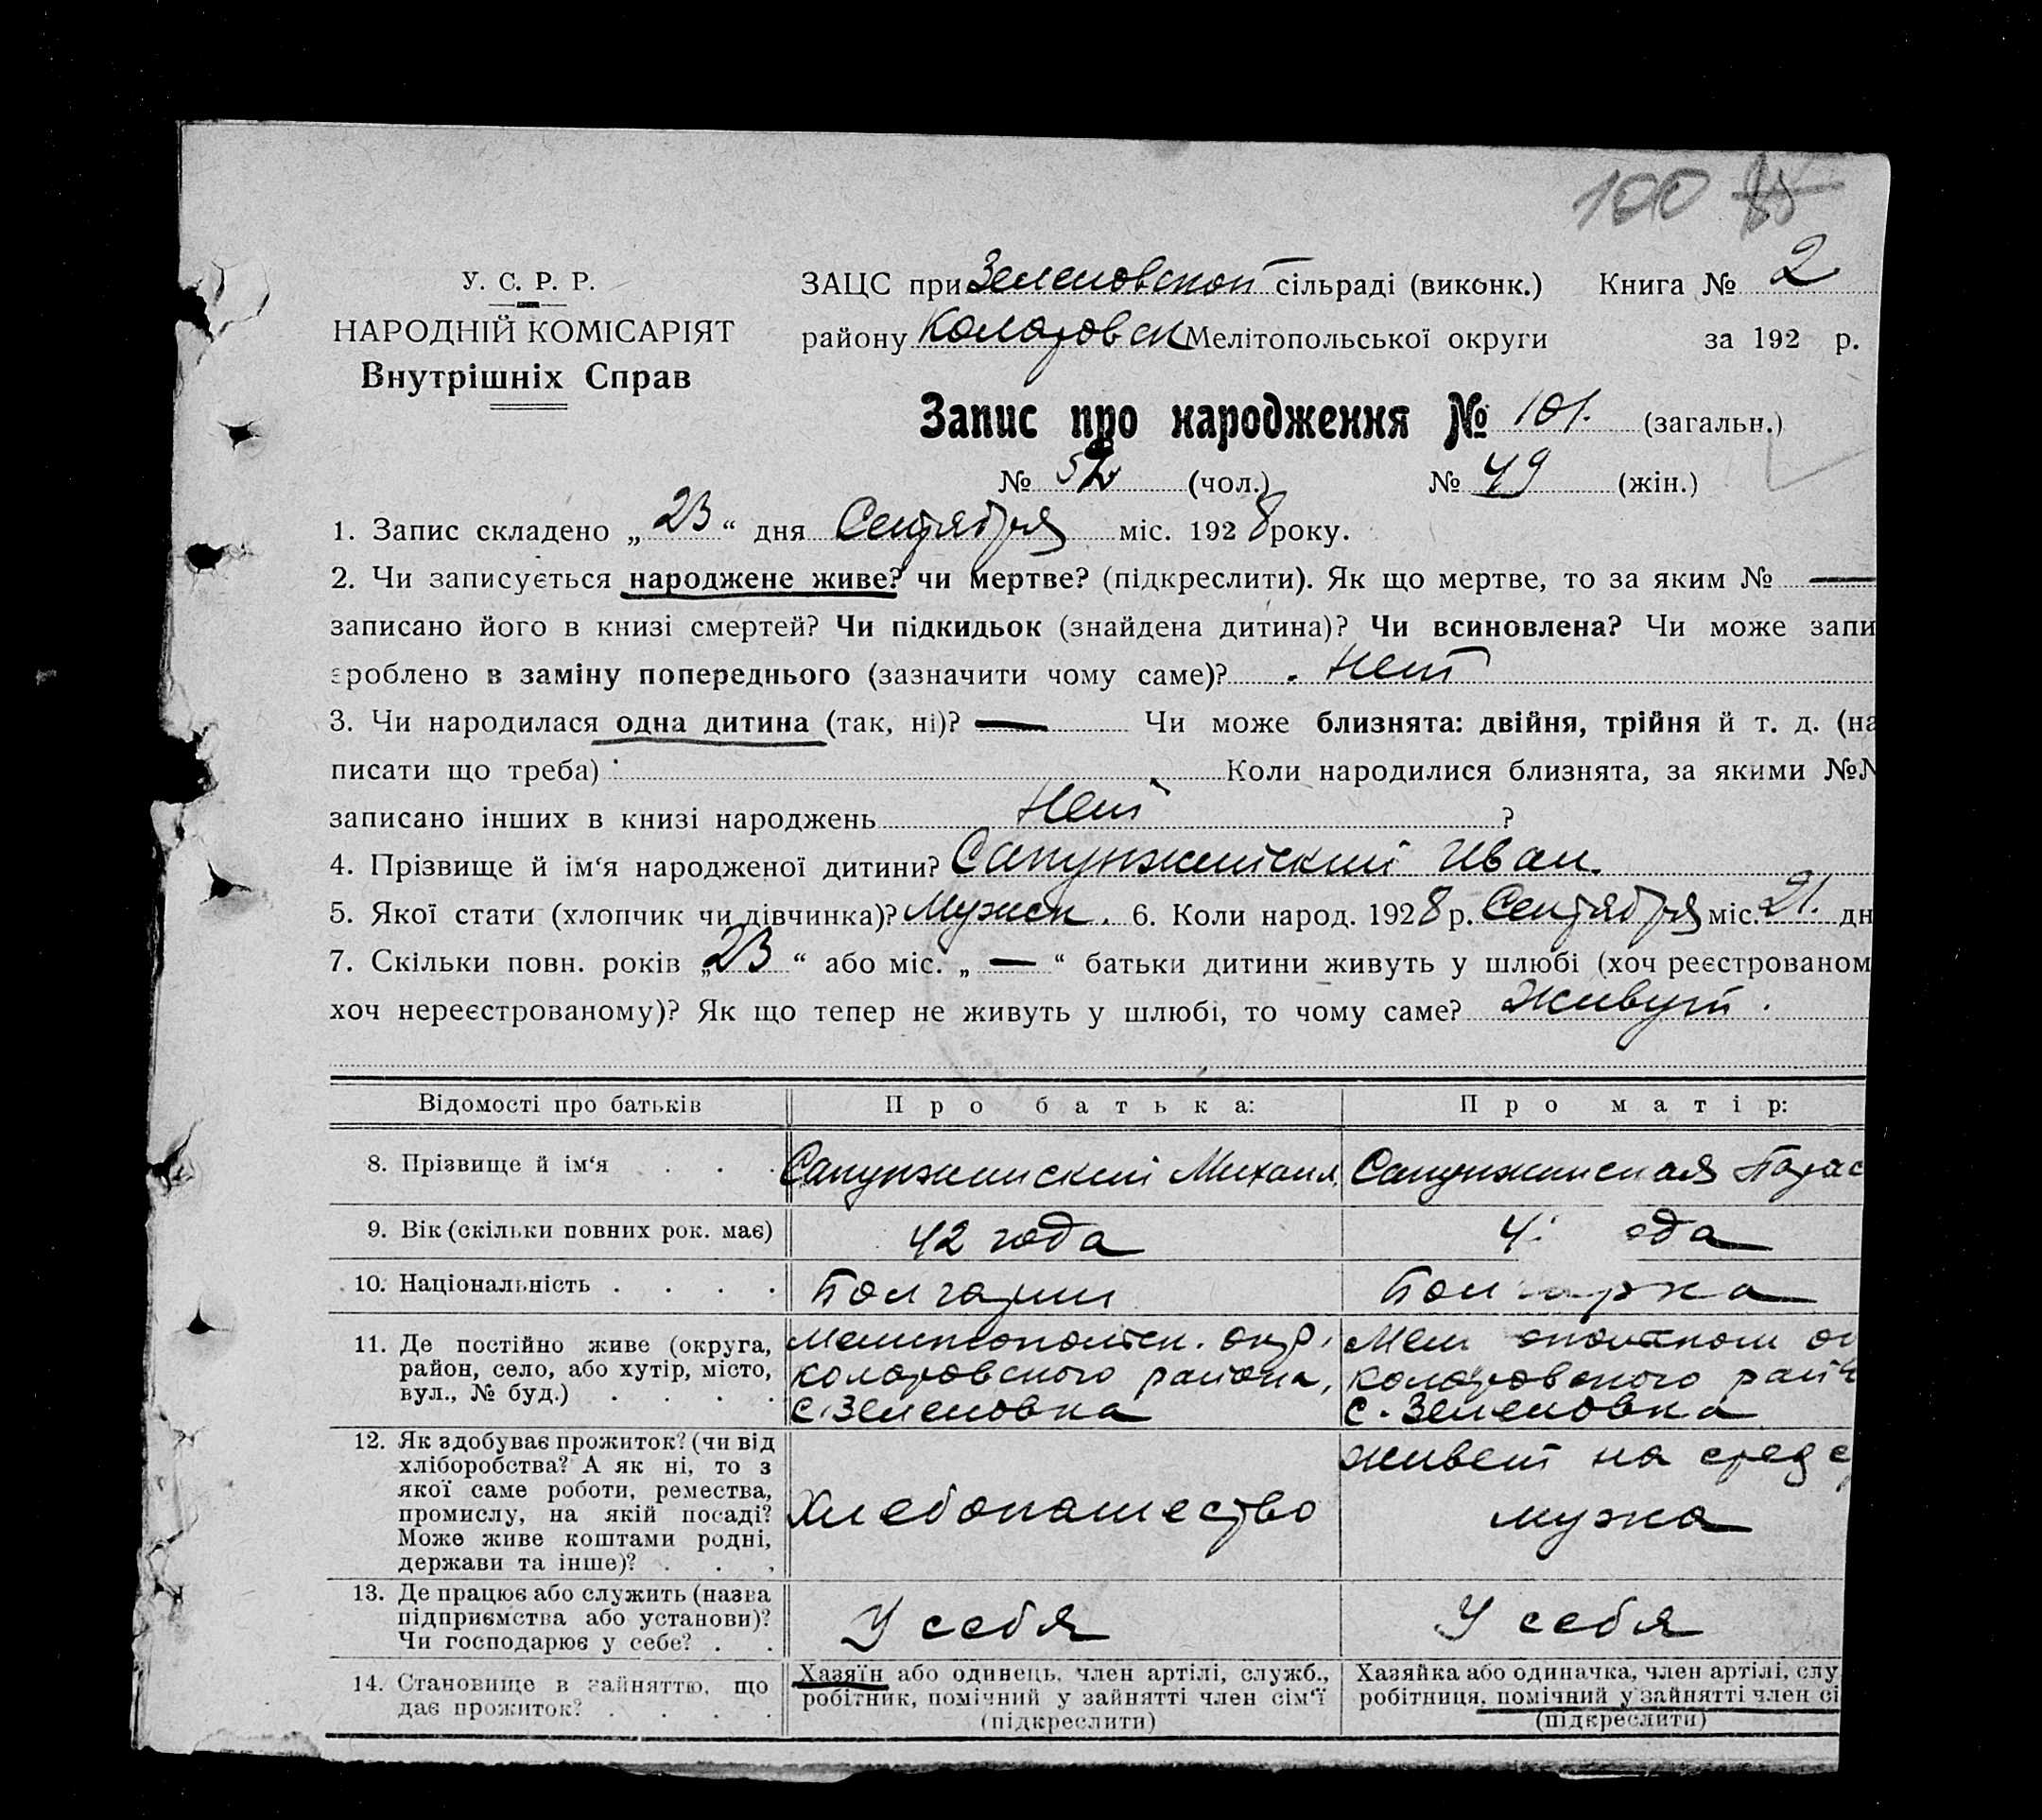 100 85
У. С. Р. Р.
НАРОДНІЙ КОМІСАРІЯТ
Внутрішніх Справ
ЗАЦС при Зеленовской сільраді (виконк.) Книга № 2
району Коларовск Мелітопольської округи за 192 р.
Запис про народження № 101. (загальн.)
№ 52 (чол.) № 49 (жін.)
1. Запис складено „ 23 “ дня Сентября міс. 1928 року.
2. Чи записується народжене живе? чи мертве? (підкреслити). Як що мертве, то за яким № —
записано його в книзі смертей? Чи підкидьок (знайдена дитина)? Чи всиновлена? Чи може запи
зроблено в заміну попереднього (зазначити чому саме)? Нет
3. Чи народилася одна дитина (так, ні)? — Чи може близнята: двійня, трійня й т. д. (на
писати що треба) Коли народилися близнята, за якими №№
записано інших в книзі народжень Нет ?
4. Прізвище й ім‘я народженої дитини? Сапунжийский Иван.
5. Якої стати (хлопчик чи дівчинка)? Мужск. 6. Коли народ. 1928 р. Сентября міс. 21. дн
7. Скільки повн. років „ 23 “ або міс. „ — “ батьки дитини живуть у шлюбі (хоч реєстрованом
хоч нереєстрованому)? Як що тепер не живуть у шлюбі, то чому саме? Живут.
Відомості про батьків Про батька: Про матір:
8. Прізвище й ім‘я . . . Сапунжийский Михаил Сапунжийская Парас
9. Вік (скільки повних рок. має) 42 года 4 ода
10. Національність . . . . Болгарин Болгарка
11. Де постійно живе (округа,
район, село, або хутір, місто,
вул., № буд.) . . . .
Мелитопольск. окр.
Коларовского района,
с. Зеленовка
Мели опольской ок
Коларовского рай
с. Зеленовка
12. Як здобуває прожиток? (чи від
хліборобства? А як ні, то з
якої саме роботи, ремества,
промислу, на якій посаді?
Може живе коштами родні,
держави та інше)? . . .
Хлебопашество
живет на средс
мужа
13. Де працює або служить (назва
підприємства або установи)?
Чи господарює у себе? . .
У себя
У себя
14. Становище в зайняттю, що
дає прожиток? . . . .
Хазяїн або одинець, член артілі, служб.,
робітник, помічний у зайнятті член сім‘ї
(підкреслити)
Хазяйка або одиначка, член артілі, слу
робітниця, помічний у зайнятті член сі
(підкреслити)